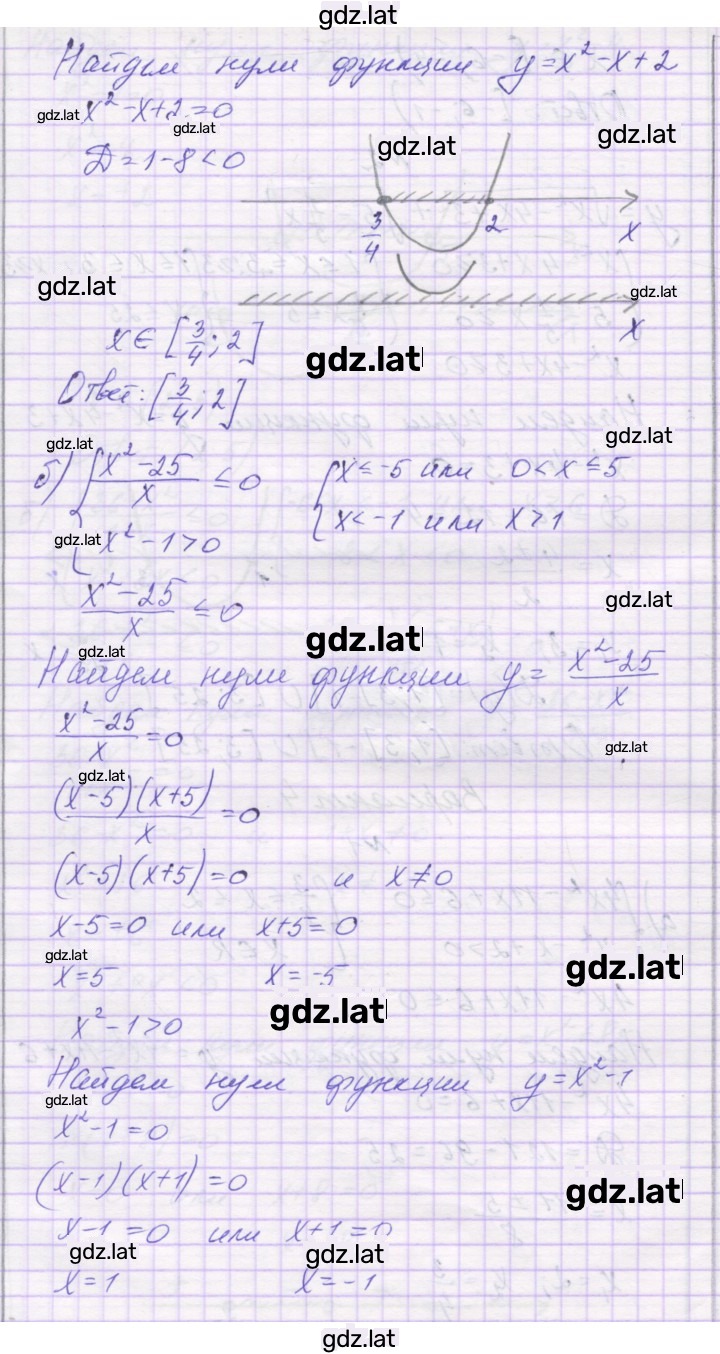 gdz.lat
Найдем нули функции y=x²-x+2
gdz.lat x²-x+2=0
gdz.lat
gdz.lat
gdz.lat
Д=1-8<0
3/4 2 x
gdz.lat
gdz.lat
x
x∈[3/4;2]
gdz.lat
Ответ:[3/4;2]
gdz.lat
gdz.lat
б) { (x²-25)/x ≤0 { x≤-5 или 0<x≤5
gdz.lat x²-1>0 x<-1 или x>1
(x²-25)/x ≤0
gdz.lat
gdz.lat
gdz.lat
Найдем нули функции y= (x²-25)/x
(x²-25)/x =0
gdz.lat
gdz.lat
((x-5)(x+5))/x =0
(x-5)(x+5)=0 и x≠0
x-5=0 или x+5=0
gdz.lat
gdz.lat
x=5 x=-5
gdz.lat
x²-1>0
Найдем нули функции y=x²-1
gdz.lat
x²-1=0
(x-1)(x+1)=0
gdz.lat
x-1=0 или x+1=0
gdz.lat
gdz.lat
x=1 x=-1
gdz.lat